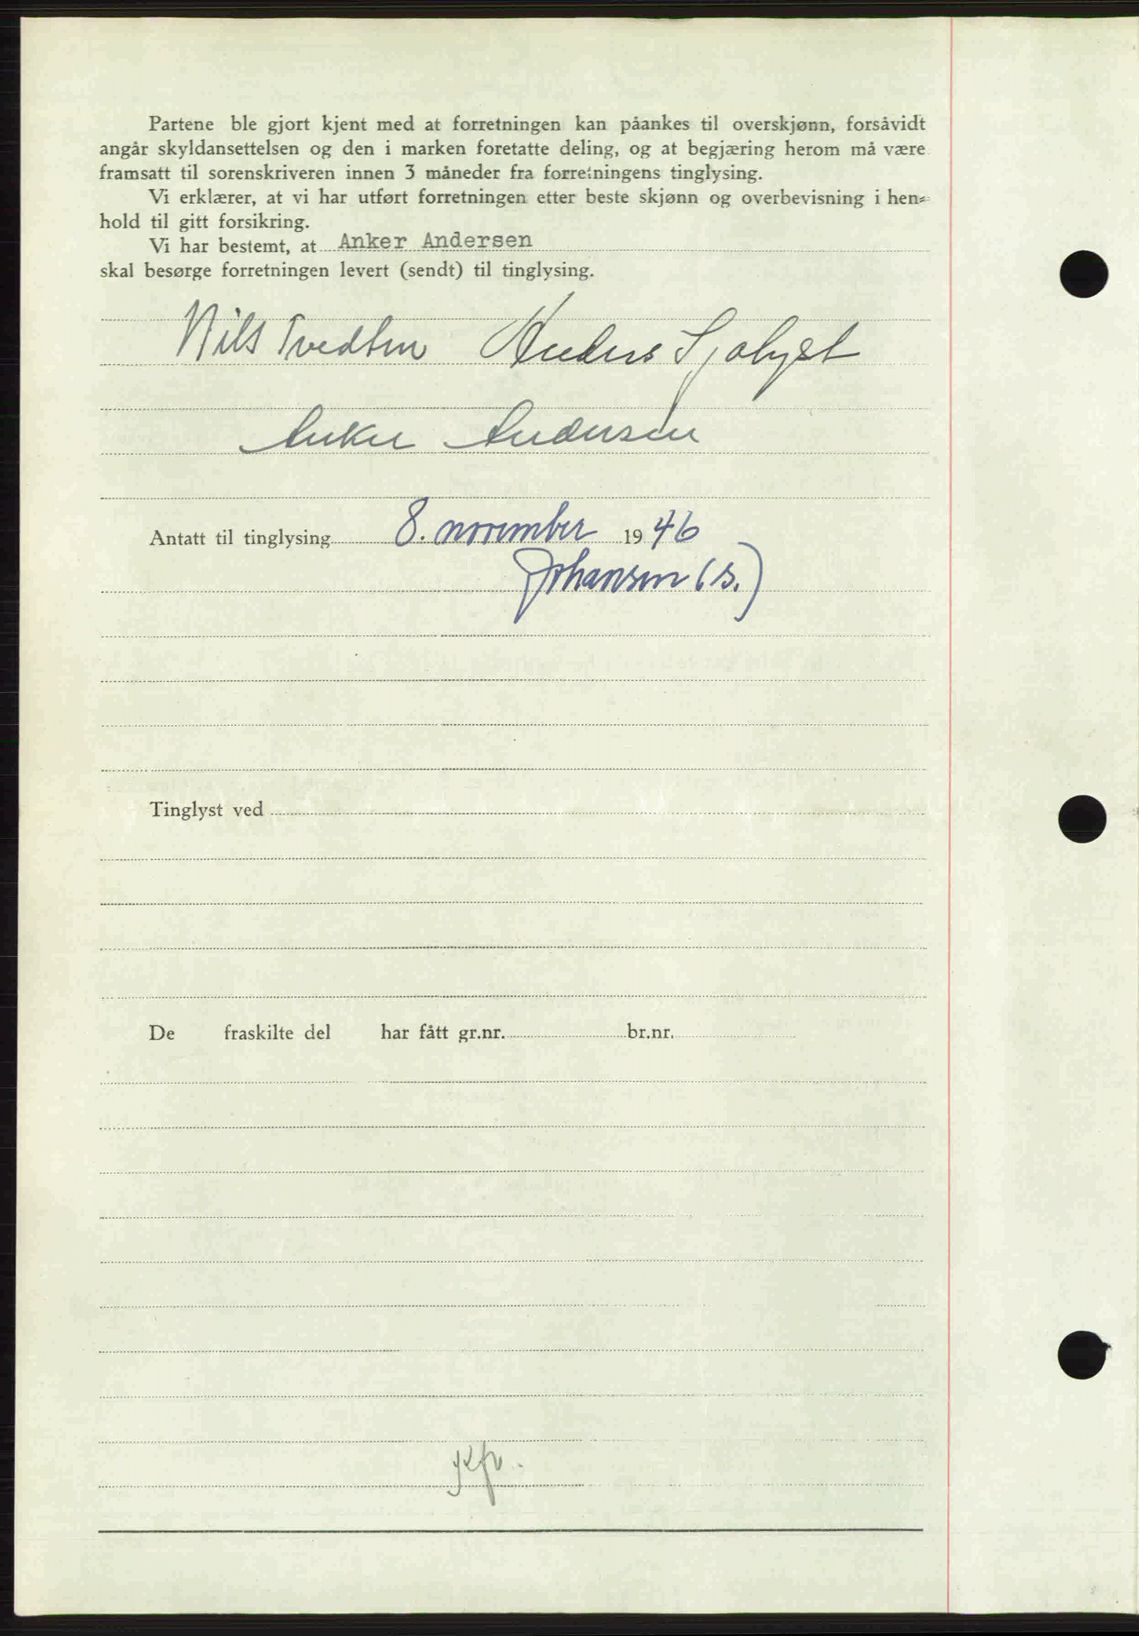 Partene ble gjort kjent med at forretningen kan påankes til overskjønn, forsåvidt
angår skyldansettelsen og den i marken foretatte deling, og at begjæring herom må være
framsatt til sorenskriveren innen 3 måneder fra forretningens tinglysing.
Vi erklærer, at vi har utført forretningen etter beste skjønn og overbevisning i hen-
hold til gitt forsikring.
Vi har bestemt, at Anker Andersen
skal besørge forretningen levert (sendt) til tinglysing.
Nils Tvedten Anders
Anker Andersen
Antatt til tinglysing 8. november 1946
Johansen (s.)
Tinglyst ved
De fraskilte del har fått gr.nr. br.nr.